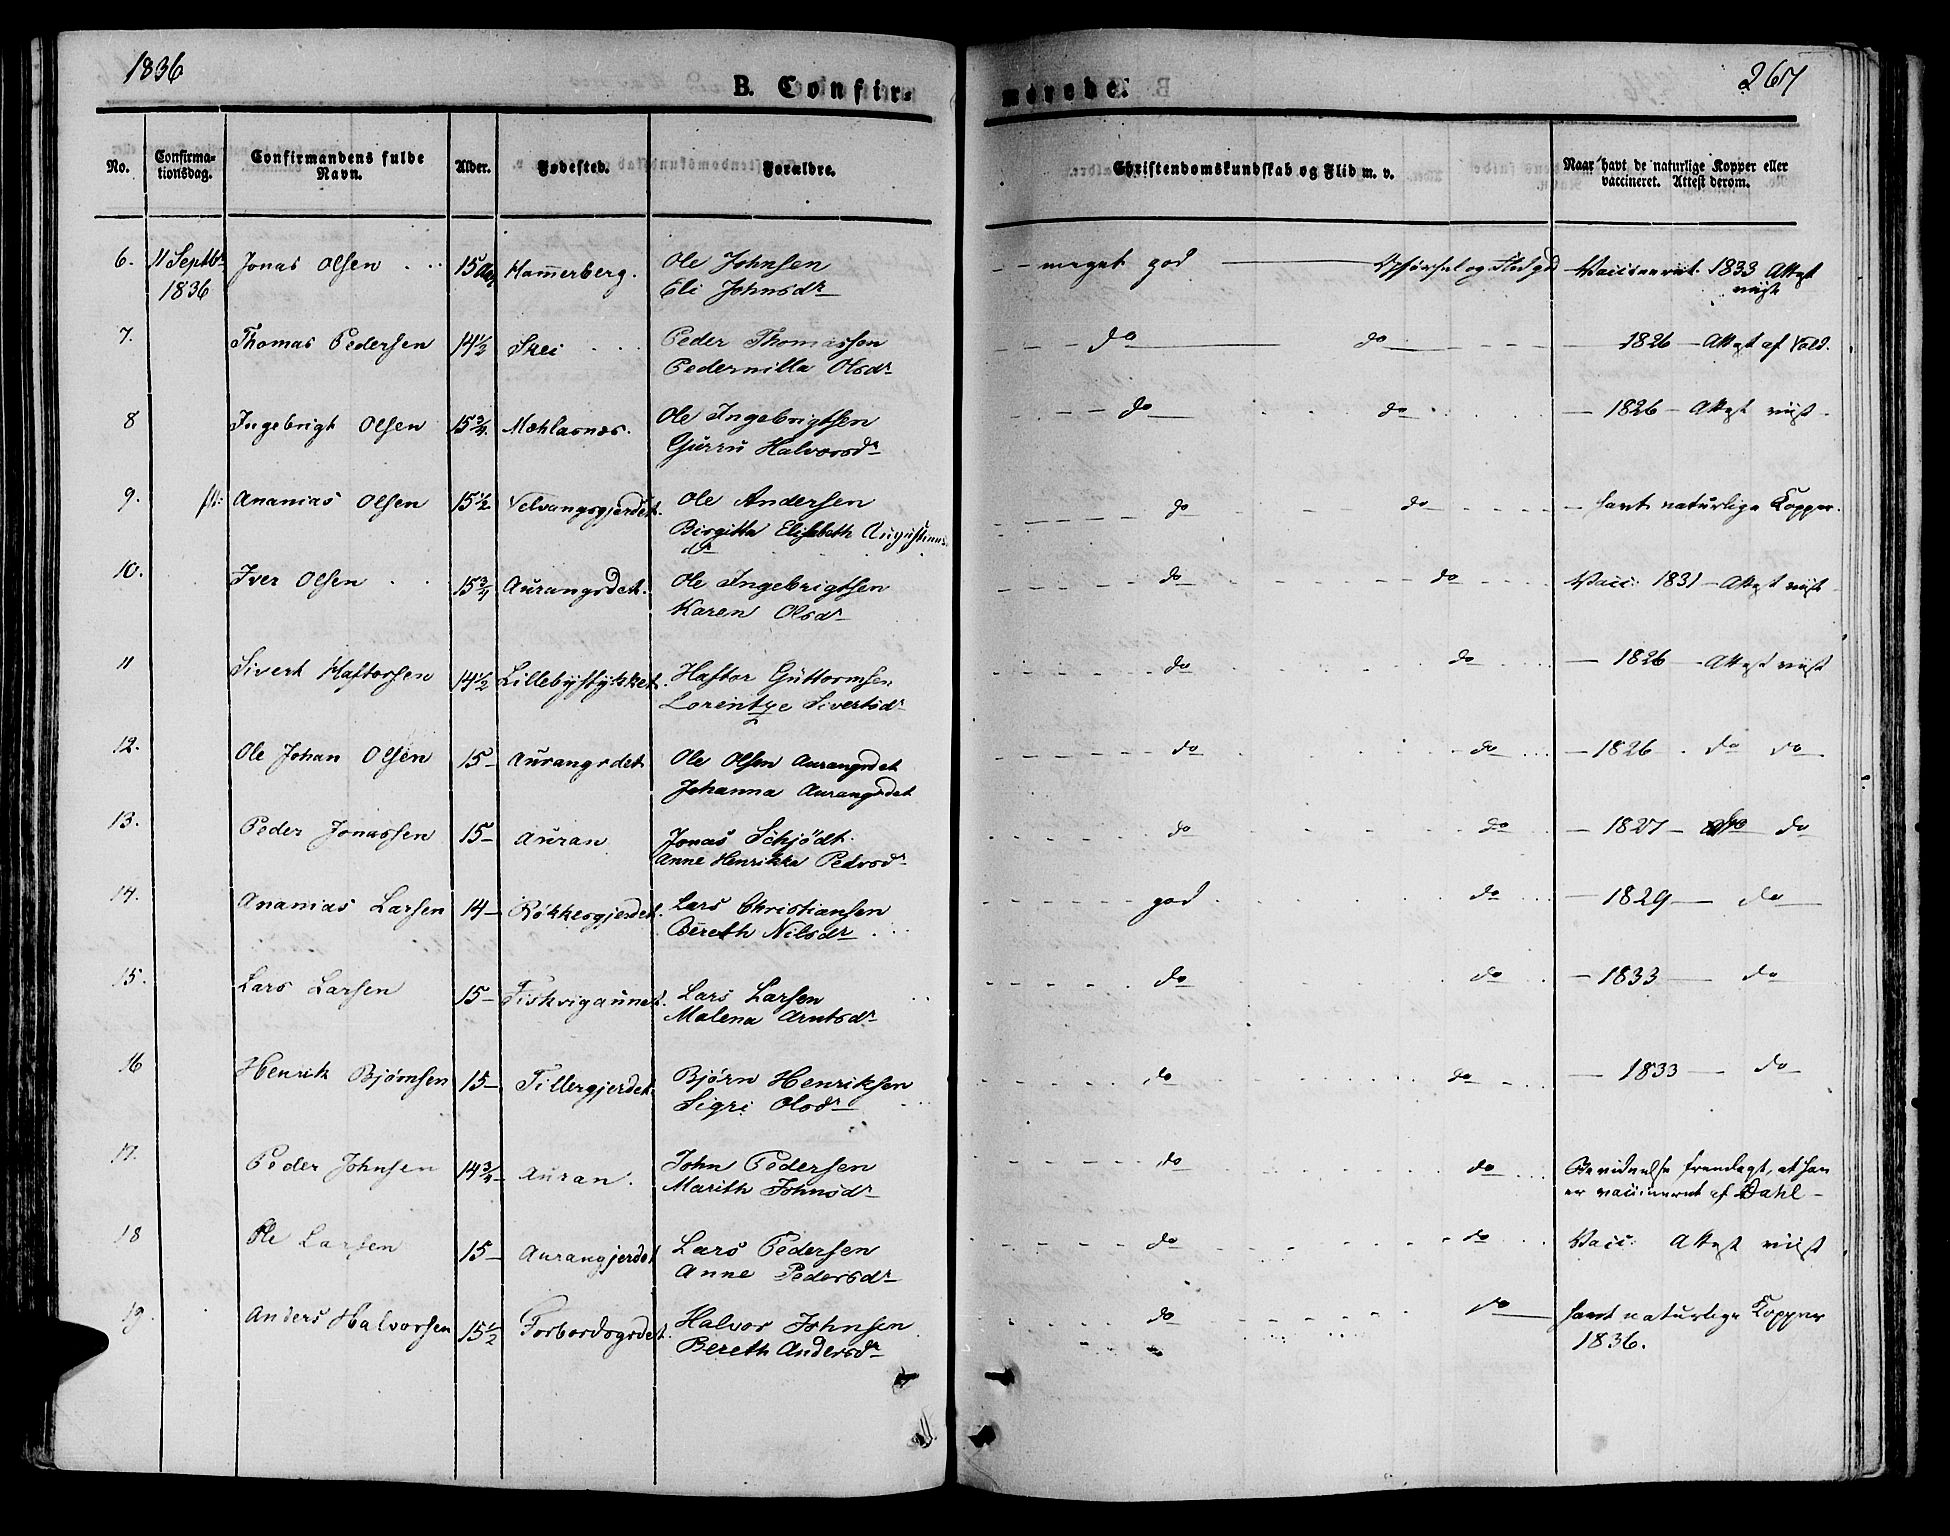 1836
267
B. Confir-
merede.
No.
Confirma-
tionsdag.
Confirmandens fulde
Navn.
Alder.
Fødested.
Forældre.
Christendomskundskab og Flid m. v.
Naar havt de naturlige Kopper eller
vaccineret. Attest derom.
6. 11 Septbr Jonas Olsen 15 Aar Hammerberg. Ole Johnsen - - meget god Opførsel og Flid god Vaccineret 1833 Attest
1836 Eli Johnsdr viist
7. Thomas Pedersen 14½ Skei Peder Thomassen do do 1826 - Attest af Vold.
Pedernilla Olsdr
8 Ingebrigt Olsen 15¾ Mæhlasnæs. Ole Ingebrigtsen do do - 1826 - Attest viist
Gurru Halvorsdr
9. Ananias Olsen 15½ Velvangsgjerdet. Ole Andersen do do - havt naturlige Kopper.
Birgitta Elisabeth Augustinus-
dr
10. Iver Olsen 15¾ Aurangrdet. Ole Ingebrigtsen do do Vacc: 1831 - Attest viist
Karen Olsdr
11 Sivert Haftorsen 14½ Lillebystykket. Haftor Guttormsen do do - 1826 - Attest viist
Lorentze Sivertsdr
12. Ole Johan Olsen 15- Aurangrdet Ole Olsen Aurangrdet do do - 1826 . do do
Johanna Aurangrdet
13. Peder Jonassen 15- Auran Jonas Schjödt. do do - 1827 - do do
Anne Henrikka Pedrsdr
14. Ananias Larsen 14- Røkkesgjerdet. Lars Christiansen god do - 1829 - do
Bereth Nilsdr
15. Lars Larsen 15- Fiskvigaunet. Lars Larsen do do - 1833 - do
Malena Arntsdr
16 Henrik Bjørnsen 15- Tillergjerdet. Bjørn Henriksen do do - 1833 - do
Sigri Olsdr
17. Peder Johnsen 14¾ Auran. John Pedersen do do Bevidnelse fremlagt, at han
Marith Johnsdr er vaccineret af Dahl -
18 Ole Larsen 15- Aurangjerdet Lars Pedersen do do Vacc: Attest viist
Anne Pedersdr
19. Anders Halvorsen 15½ Forbordsgrdet. Halvor Johnsen do do havt naturlige Kopper
Bereth Andersdr 1836.